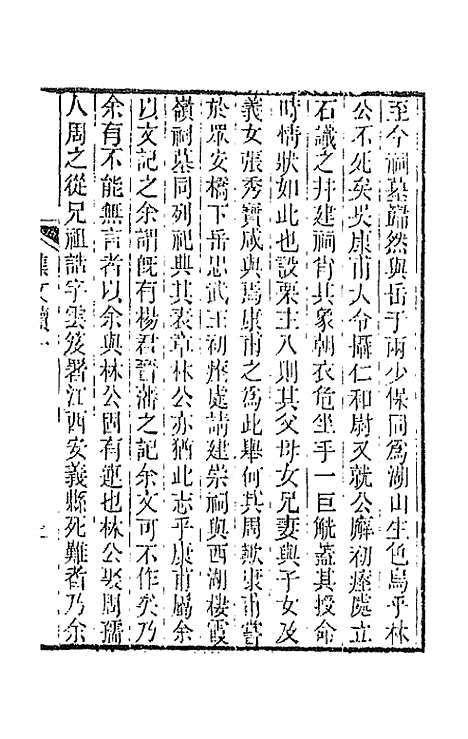 至今祠墓巋然與岳于兩少保同爲湖山生色烏乎林
公不死矣吳康甫大令攝仁和尉又就公廨初瘞處立
石識之幷建祠肖其象朝衣危坐手一巨觥蓋其授命
時情狀如此也設栗主八則其父母女兄妻與子女及
義女張秀寶咸與焉康甫之爲此舉何其周歟康甫嘗
於眾安橋下岳忠武王初瘞處請建崇祠與西湖棲霞
嶺祠墓同列祀典其表章林公亦猶此志乎康甫屬余
以文記之余謂旣有楊君晉藩之記余文可不作矣乃
余有不能無言者以余與林公固有連也林公娶周孺
人周之從兄祖誥字雲笈署江西安義縣死難者乃余
集文續一